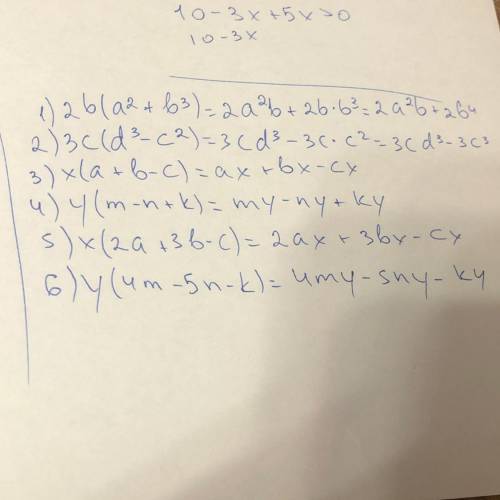 10-3x+5x>0
10-3x
1) 2b(a²+b³)=2a²b+2b·b³=2a²b+2b⁴
2) 3c(d³-c²)=3cd³-3c·c²=3cd³-3c³
3) x(a+b-c)=ax+bx-cx
4) y(m-n+k)=my-ny+ky
5) x(2a+3b-c)=2ax+3bx-cx
6) y(4m-5n-k)=4my-5ny-ky